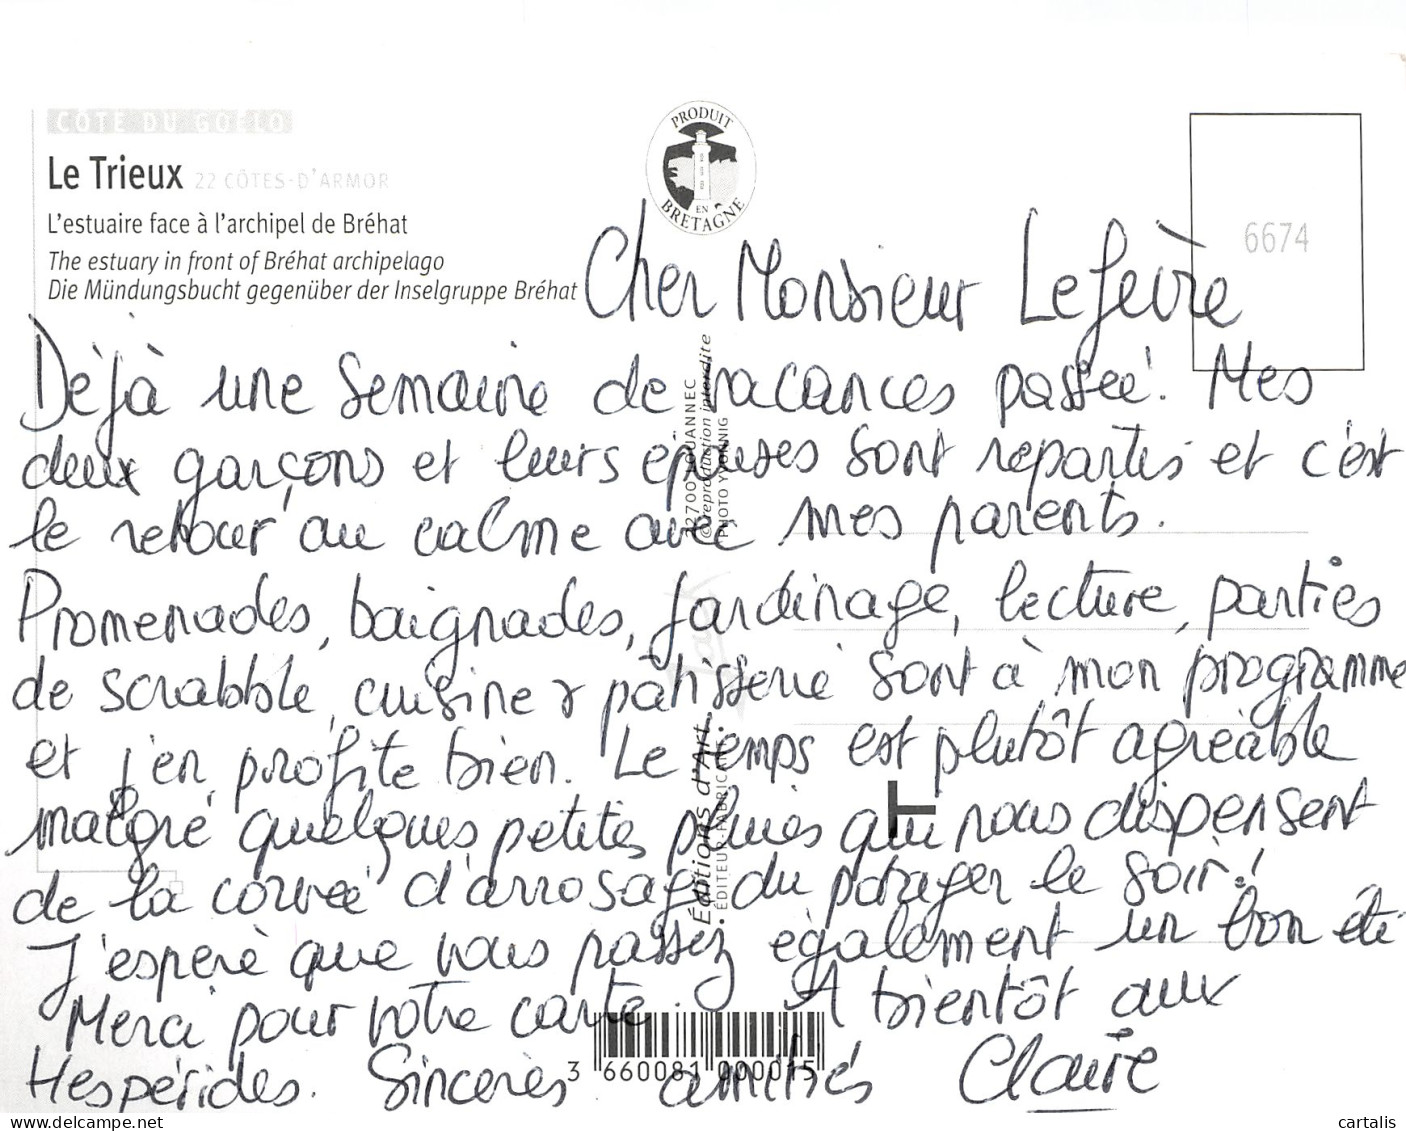 CÔTE DU GOËLO
Le Trieux 22 CÔTES-D'ARMOR
L'estuaire face à l'archipel de Bréhat
The estuary in front of Bréhat archipelago
Die Mündungsbucht gegenüber der Inselgruppe Bréhat
PRODUIT
EN
BRETAGNE
6674
Cher Monsieur Lefèvre
Déjà une semaine de vacances passée! Mes
deux garçons et leurs épouses sont repartis et c'est
le retour au calme avec mes parents.
Promenades, baignades, jardinage, lecture, parties
de scrabble, cuisine & pâtisserie sont à mon programme
et j'en profite bien. Le temps est plutôt agréable
malgré quelques petites pluies qui nous dispensent
de la corvée d'arrosage du potager le soir!
J'espère que vous passez également un bon été
Merci pour votre carte. A bientôt aux
Hespérides. Sincères amitiés Claire
22700 LOUANNEC
© reproduction interdite
PHOTO YVONNIG
Éditions d'Art
ÉDITEUR-FABRICANT
3 660081 000015
cartalis